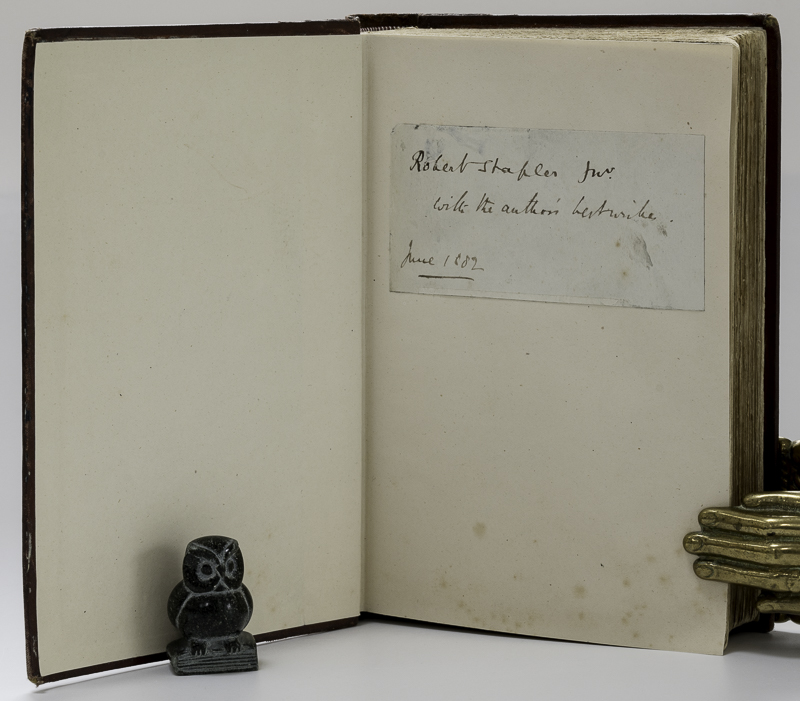 Robert Stapler Junr.
with the author's best wishes.
June 1882